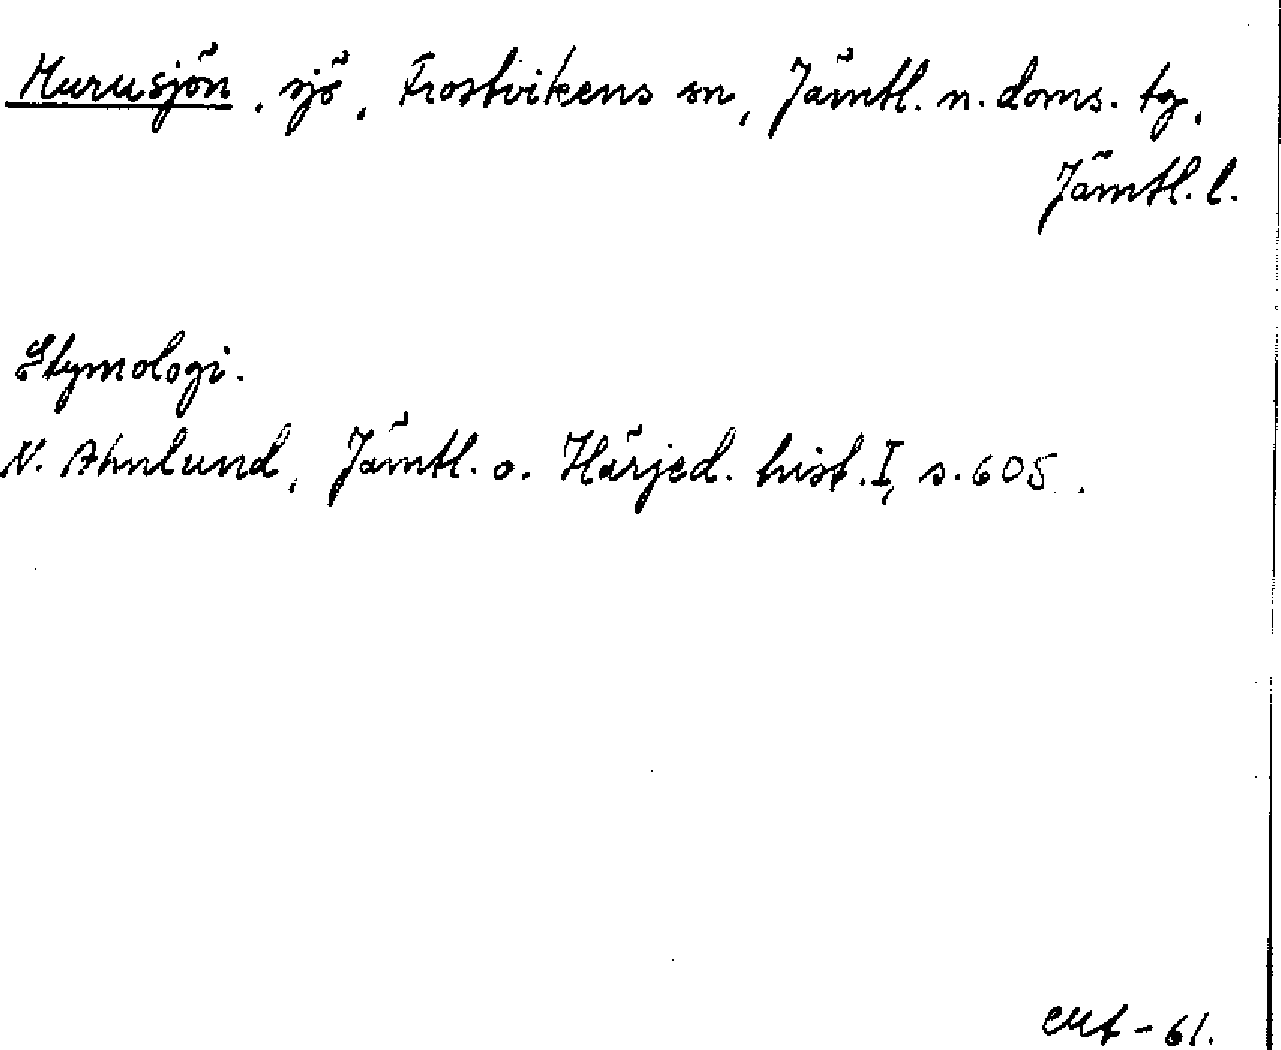 Murusjön, sjö, Frostvikens sn, Jämtl. n. doms. tg,
Jämtl. l.
Etymologi.
N. Ahnlund, Jämtl. o. Härjed. hist. I, s. 605.
- 61.